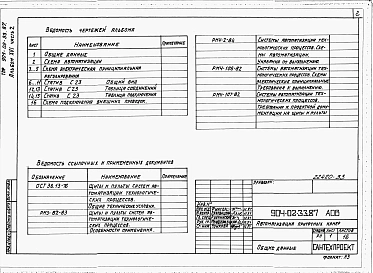 2
ТПР 904-02-33.87
Альбом XVI часть 2
Ведомость чертежей альбома
Лист Наименование Примечание
1 Общие данные
2 Схема автоматизации
3..5 Схема электрическая принципиальная
регулирования
6..11 Статив С 23 Общий вид
12,13 Статив С 23 Таблица соединений
14,15 Статив С 23 Таблица подключения
16 Схема подключения внешних проводок
РМ4-2-84 Системы автоматизации тех-
нологических процессов. Схе-
мы автоматизации.
Указания по выполнению
РМ4-106-82 Системы автоматизации тех-
нологических процессов. Схемы
электрические принципиальные
Требования к выполнению.
РМ4-107-82 Системы автоматизации тех-
нологических процессов.
Требования к проектной доку-
ментации на щиты и пульты
Ведомость ссылочных и примененных документов
Обозначение Наименование Примечание
ОСТ 36.13-76 Щиты и пульты систем ав-
томатизации технологиче-
ских процессов.
Общие технические условия.
РМ3-82-83 Щиты и пульты систем ав-
томатизации технологических
процессов.
Особенности применения.
Привязан:
904-02-33.87 АОВ
Автоматизация приточных камер
Стадия Лист Листов
1 16
Общие данные
САНТЕХПРОЕКТ
Формат А3